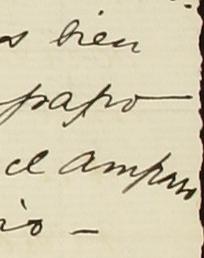 s bien
papo—
el amparo
rio —